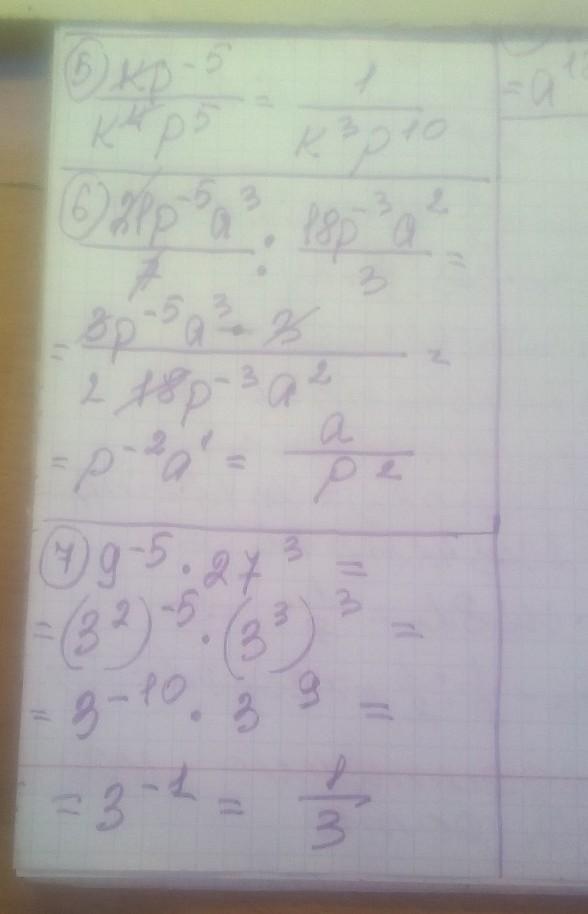 ⑤ kp⁻⁵ / k⁴p⁵ = 1 / k³p¹⁰
⑥ 21p⁻⁵a³ / 7 : 18p⁻³a² / 3 =
= 3p⁻⁵a³ · 3 / 2 18p⁻³a² =
= p⁻²a¹ = a / p²
⑦ 9⁻⁵ · 27³ =
= (3²)⁻⁵ · (3³)³ =
= 3⁻¹⁰ · 3⁹ =
= 3⁻¹ = 1 / 3